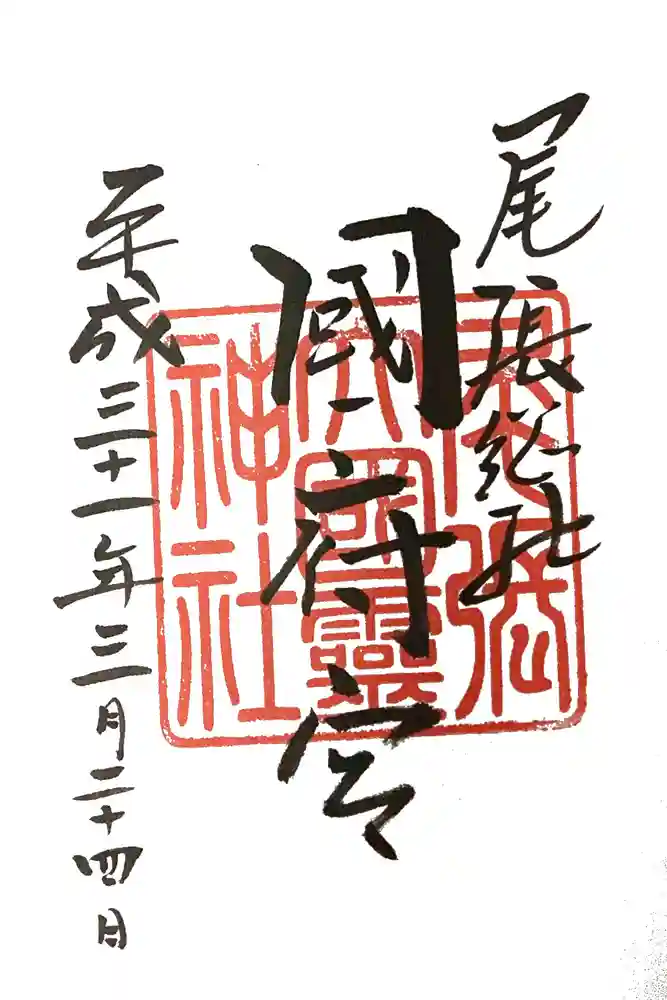 尾張総社
國府宮
平成三十一年三月二十四日
尾張
大國靈
神社